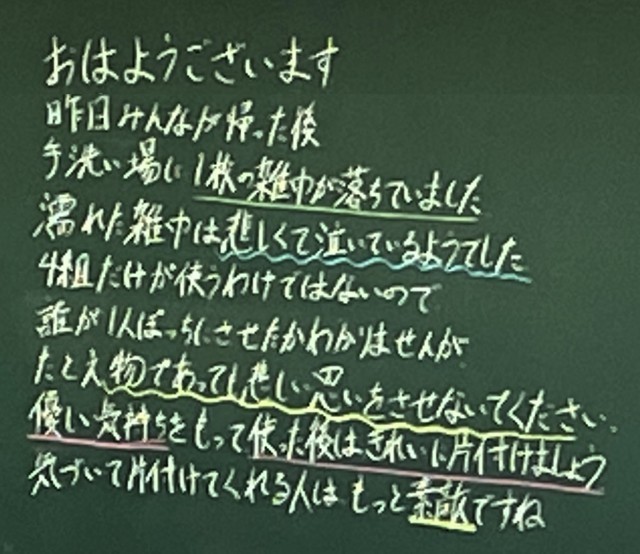 おはようございます
昨日みんなが帰った後
手洗い場に1枚の雑巾が落ちていました
濡れた雑巾は悲しくて泣いているようでした
4組だけが使うわけではないので
誰が1人ぼっちにさせたかわかりませんが
たとえ物であっても悲しい思いをさせないでください。
優しい気持ちをもって使った後はきれいに片付けましょう
気づいて片付けてくれる人はもっと素敵ですね